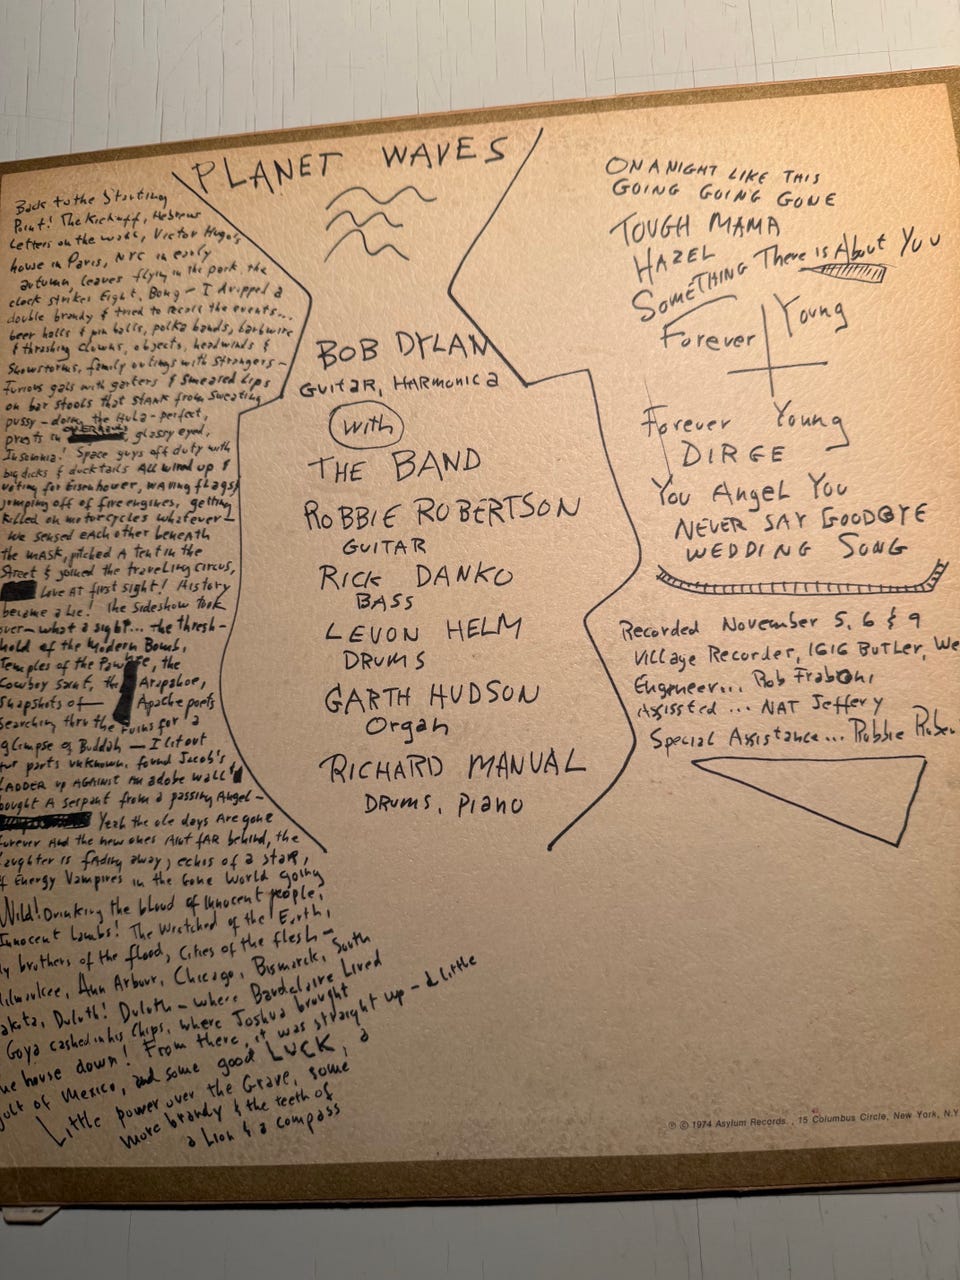 PLANET WAVES
Back to the Starting
Point! The Kickoff, Hebrew
Letters on the wall, Victor Hugo's
house in Paris, NYC in early
autumn, leaves flying in the park, the
clock strikes Eight, Bong - I dropped a
double brandy & tried to recall the events...
beer halls & pin balls, polka bands, barbwire
& thrashing clowns, objects, headwinds &
Snowstorms, family outings with strangers -
Furious gals with garters & smeared Lips
on bar stools that stank from sweating
pussy - doing the Hula - perfect,
priests in glassy eyed,
Insomnia! Space guys off duty with
big dicks & ducktails All wired up &
voting for Eisenhower, waving flags &
jumping off of fire engines, getting
killed on motorcycles whatever -
We sensed each other beneath
the mask, pitched A tent in the
Street & joined the traveling circus,
Love At first sight! History
became a Lie! The sideshow took
over - what a sight... the thresh-
hold of the Modern Bomb,
Temples of the Pawnee, the
Cowboy saint, the Arapahoe,
snapshots of - Apache poets
searching thru the ruins for a
glimpse of Buddah - I lit out
for parts unknown, found Jacob's
LADDER up AGAINST An adobe wall &
bought A serpant from a passing Angel -
Yeah the ole days Are gone
forever And the new ones Aint fAR behind, the
Laughter is fAding away, echos of a star,
of Energy Vampires in the Gone World going
Wild! Drinking the blood of innocent people,
Innocent Lambs! The Wretched of the Earth,
My brothers of the flood, Cities of the flesh -
Milwaukee, Ann Arbour, Chicago, Bismarck, South
Dakota, Duluth! Duluth - where Baudelaire Lived
& Goya cashed in his Chips, where Joshua brought
the house down! From there, it was straight up - a little
jolt of Mexico, and some good LUCK, a
Little power over the Grave, some
more brandy & the teeth of
a Lion & a compass
BOB DYLAN
GUITAR, HARMONICA
with
THE BAND
ROBBIE ROBERTSON
GUITAR
RICK DANKO
BASS
LEVON HELM
DRUMS
GARTH HUDSON
Organ
RICHARD MANUAL
DRUMS, PIANO
ON A NIGHT LIKE THIS
GOING GOING GONE
TOUGH MAMA
HAZEL
SOMETHING There is About You
Forever Young
Forever Young
DIRGE
You Angel You
NEVER SAY GOODBYE
WEDDING SONG
Recorded November 5, 6 & 9
Village Recorder, 1616 BUTLER, We
Engineer... Rob Fraboni
Assissted ... NAT Jeffery
Special Assistance... Robbie Rober
℗ © 1974 Asylum Records., 15 Columbus Circle, New York, N.Y